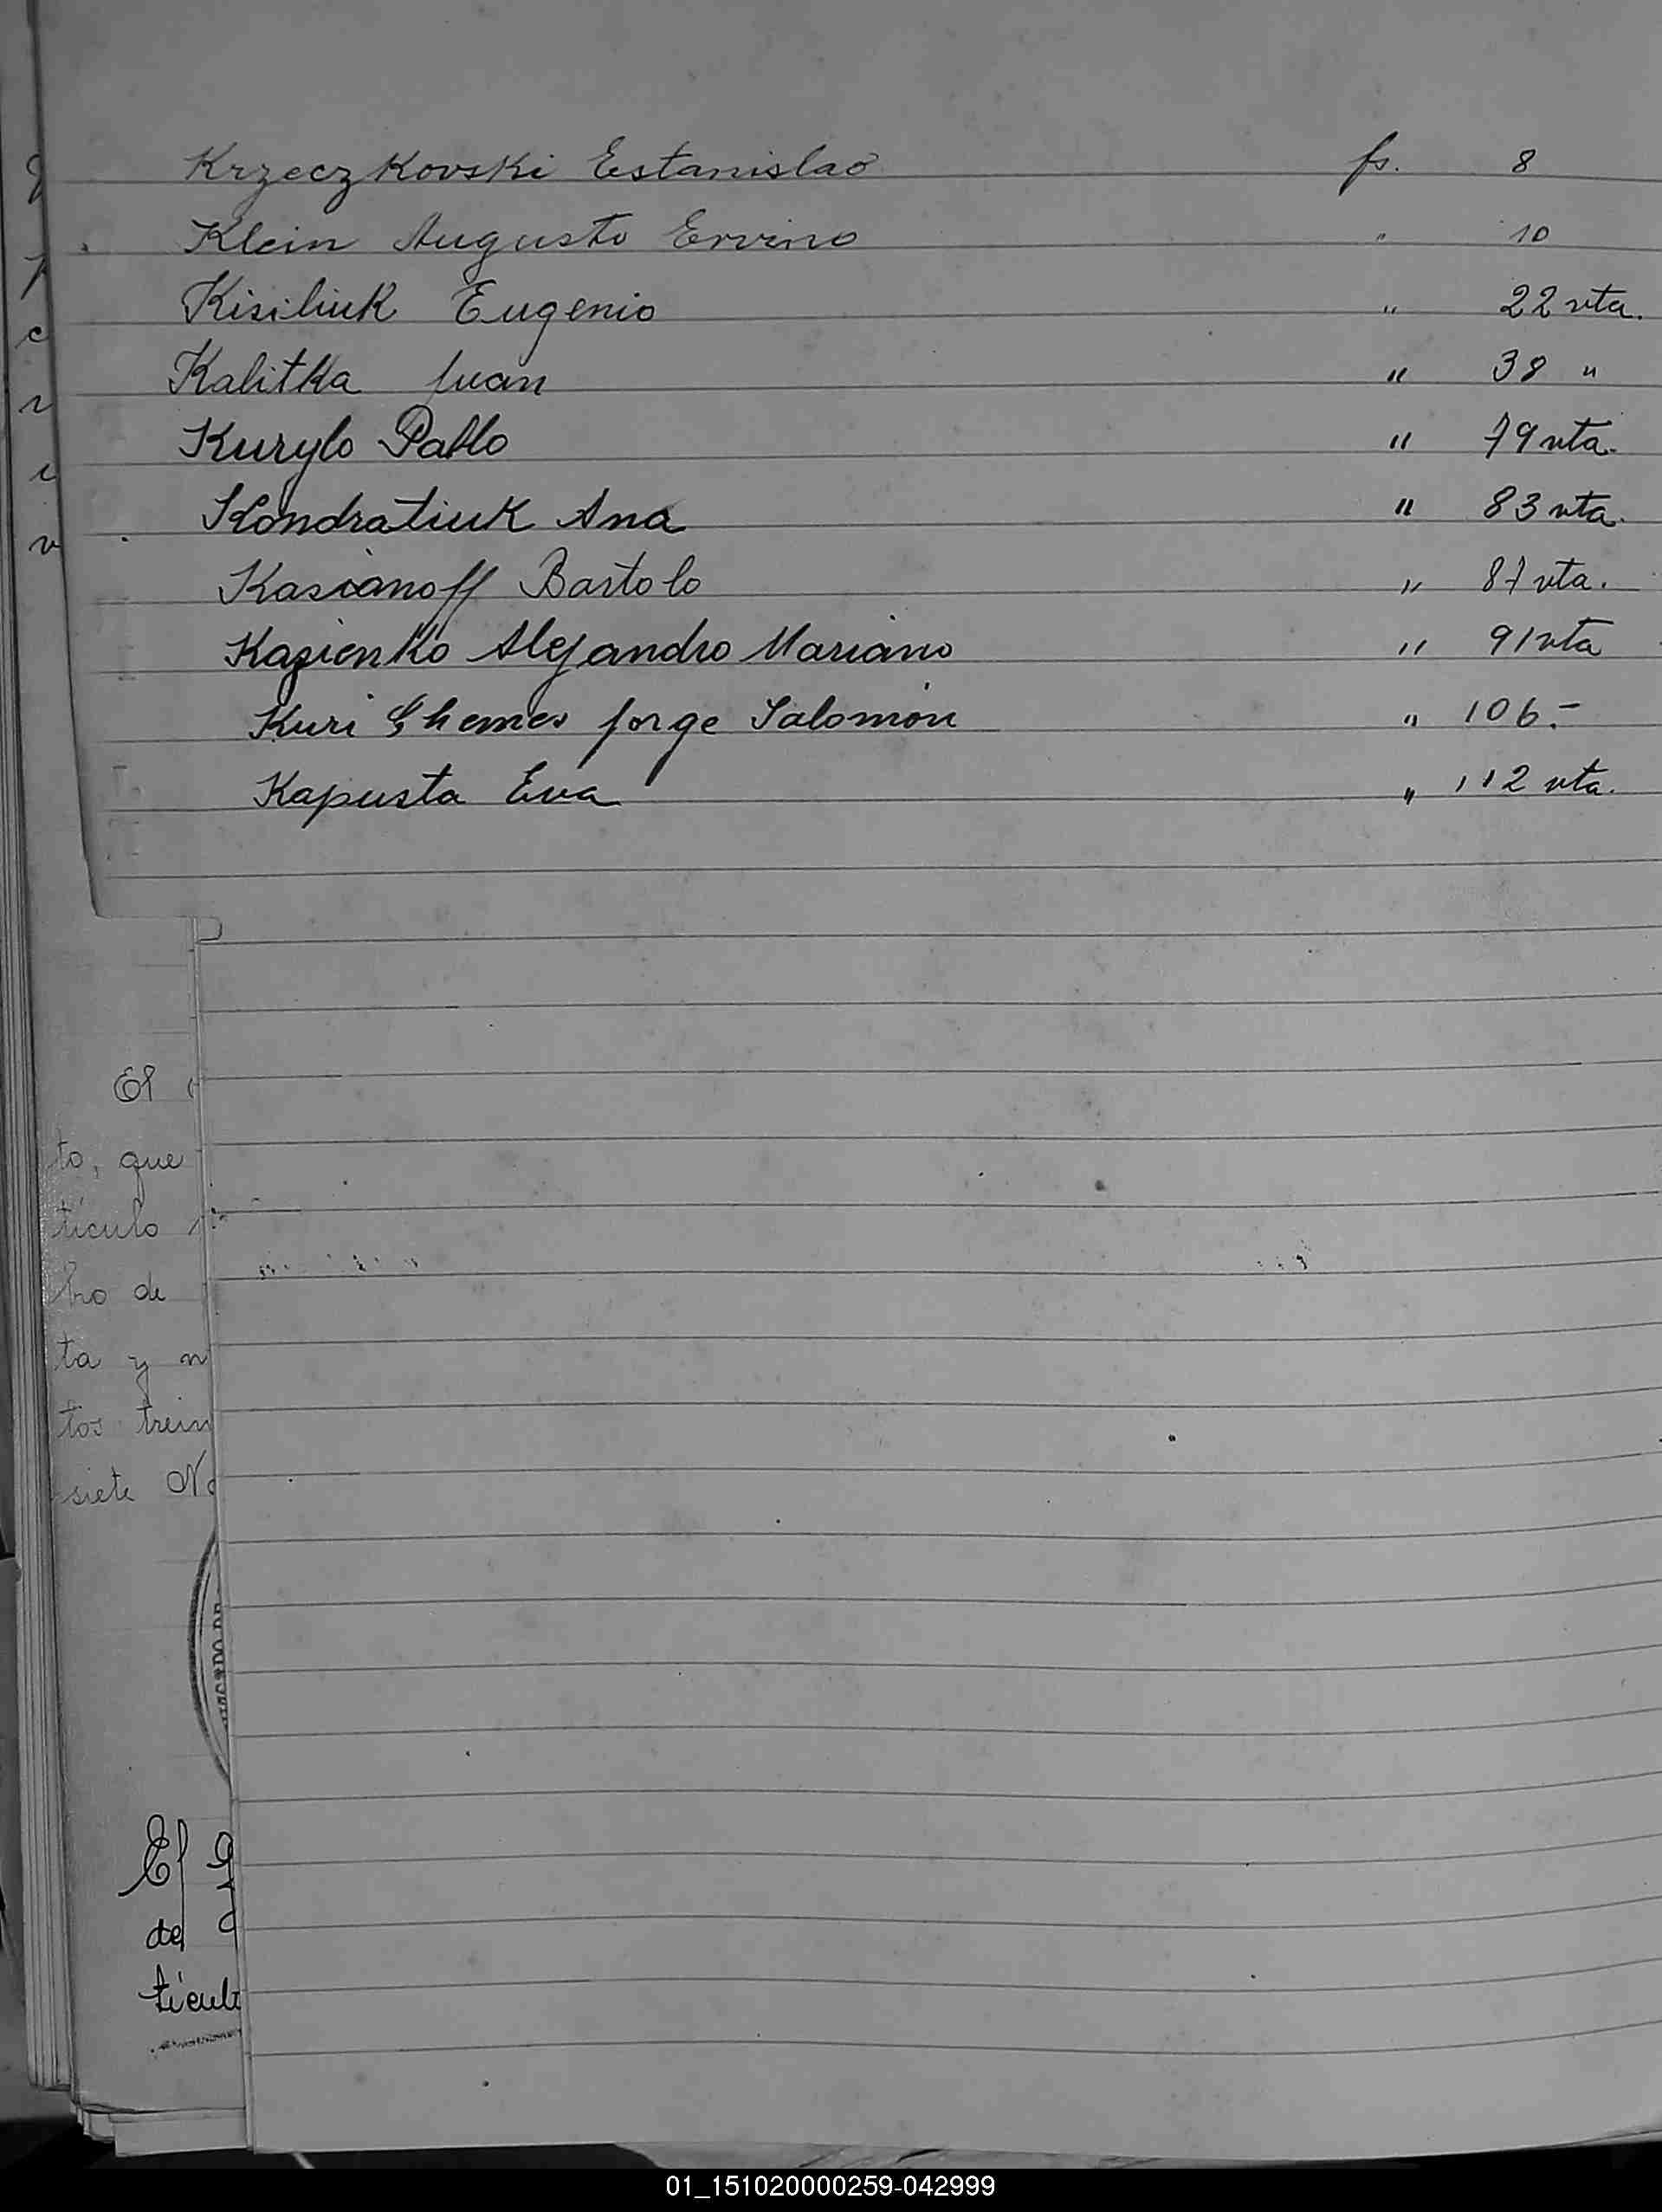 Krzeczkovski Estanislao fs. 8
Klein Augusto Ervino " 10
Kisiliuk Eugenio " 22 vta.
Kalitka Juan " 38 "
Kurylo Pablo " 79 vta.
Kondratiuk Ana " 83 vta.
Kasianoff Bartolo " 87 vta.
Kazienko Alejandro Mariano " 91 vta
Kuri Chemes Jorge Salomón " 106.-
Kapusta Eva " 112 vta.
El
to, que
tículo
bro de
ta y n
tos trein
siete No
El
del
tículo
01_151020000259-042999